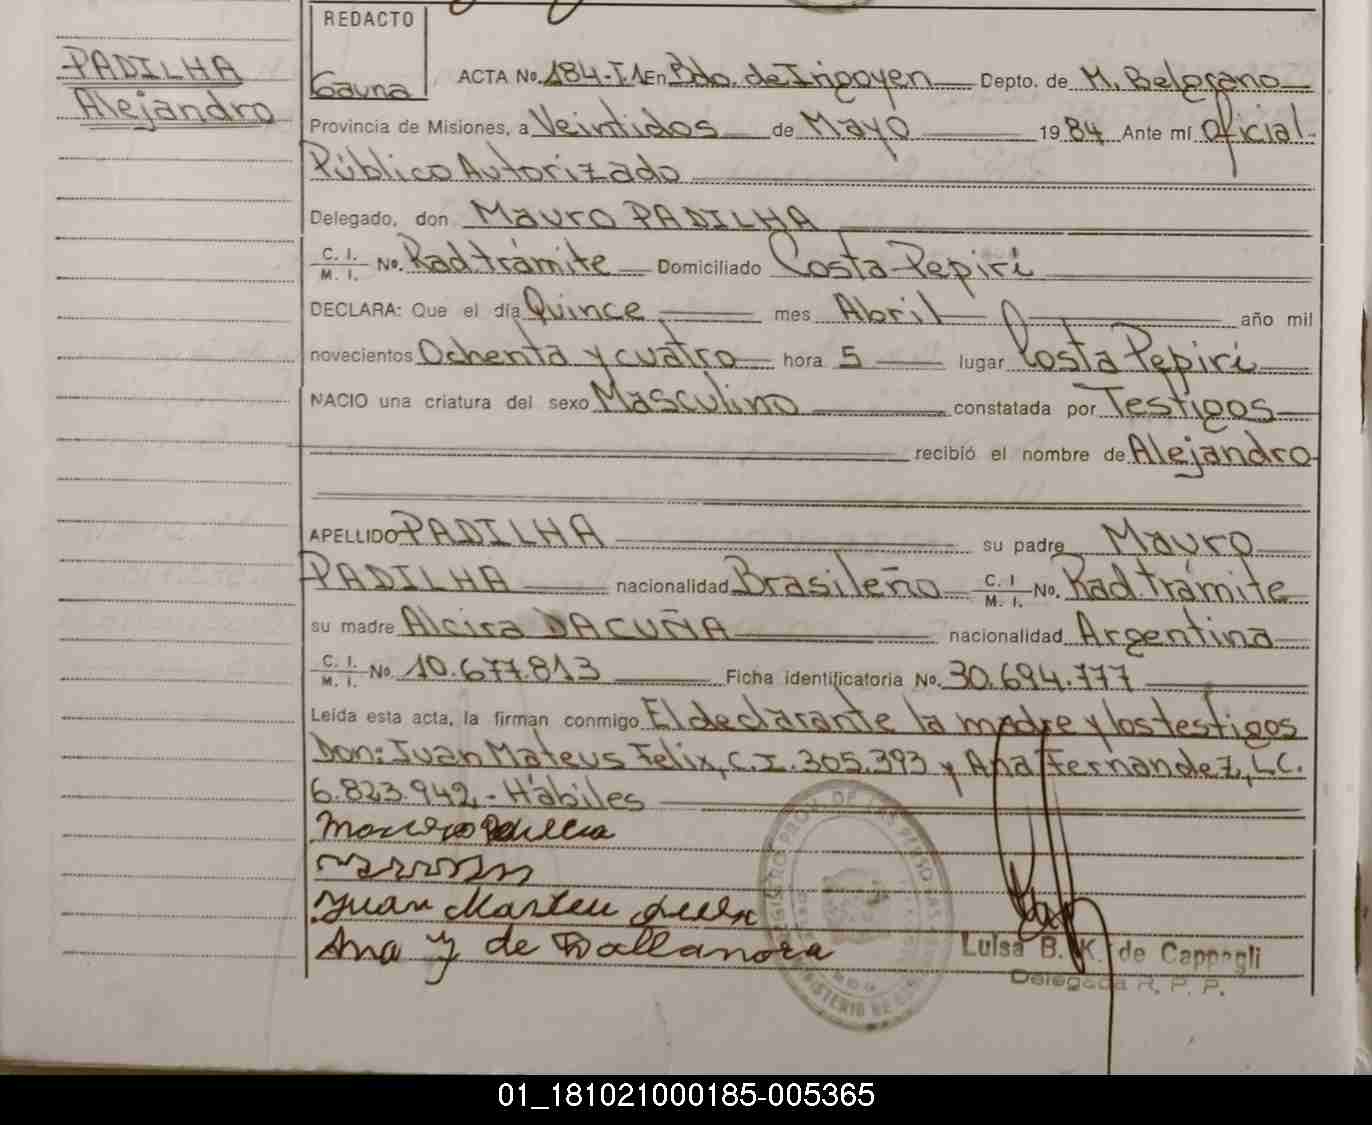 REDACTO
Gauna
PADILHA
Alejandro
ACTA No. 184-T1 En Bdo. de Irigoyen Depto. de M. Belgrano
Provincia de Misiones, a Veintidos de Mayo 1984 Ante mí Oficial
Público Autorizado
Delegado, don Mauro PADILHA
C. I. / M. I. No. Rad. trámite Domiciliado Costa Pepirí
DECLARA: Que el día Quince mes Abril año mil
novecientos Ochenta y cuatro hora 5 lugar Costa Pepirí
NACIO una criatura del sexo Masculino constatada por Testigos
recibió el nombre de Alejandro
APELLIDO PADILHA su padre Mauro
PADILHA nacionalidad Brasileño C. I / M. I. No. Rad. trámite
su madre Alcira DACUÑA nacionalidad Argentina
C. I. / M. I. No. 10.677.813 Ficha identificatoria No. 30.694.777
Leída esta acta, la firman conmigo El declarante la madre y los testigos
Don: Juan Mateus Felix, C.I. 305.393 y Ana Fernandez, L.C.
6.823.942.- Hábiles
Juan
Ana y de Dallanora
Luisa B. K. de Cappagli
Delegada R. P. P.
01_181021000185-005365